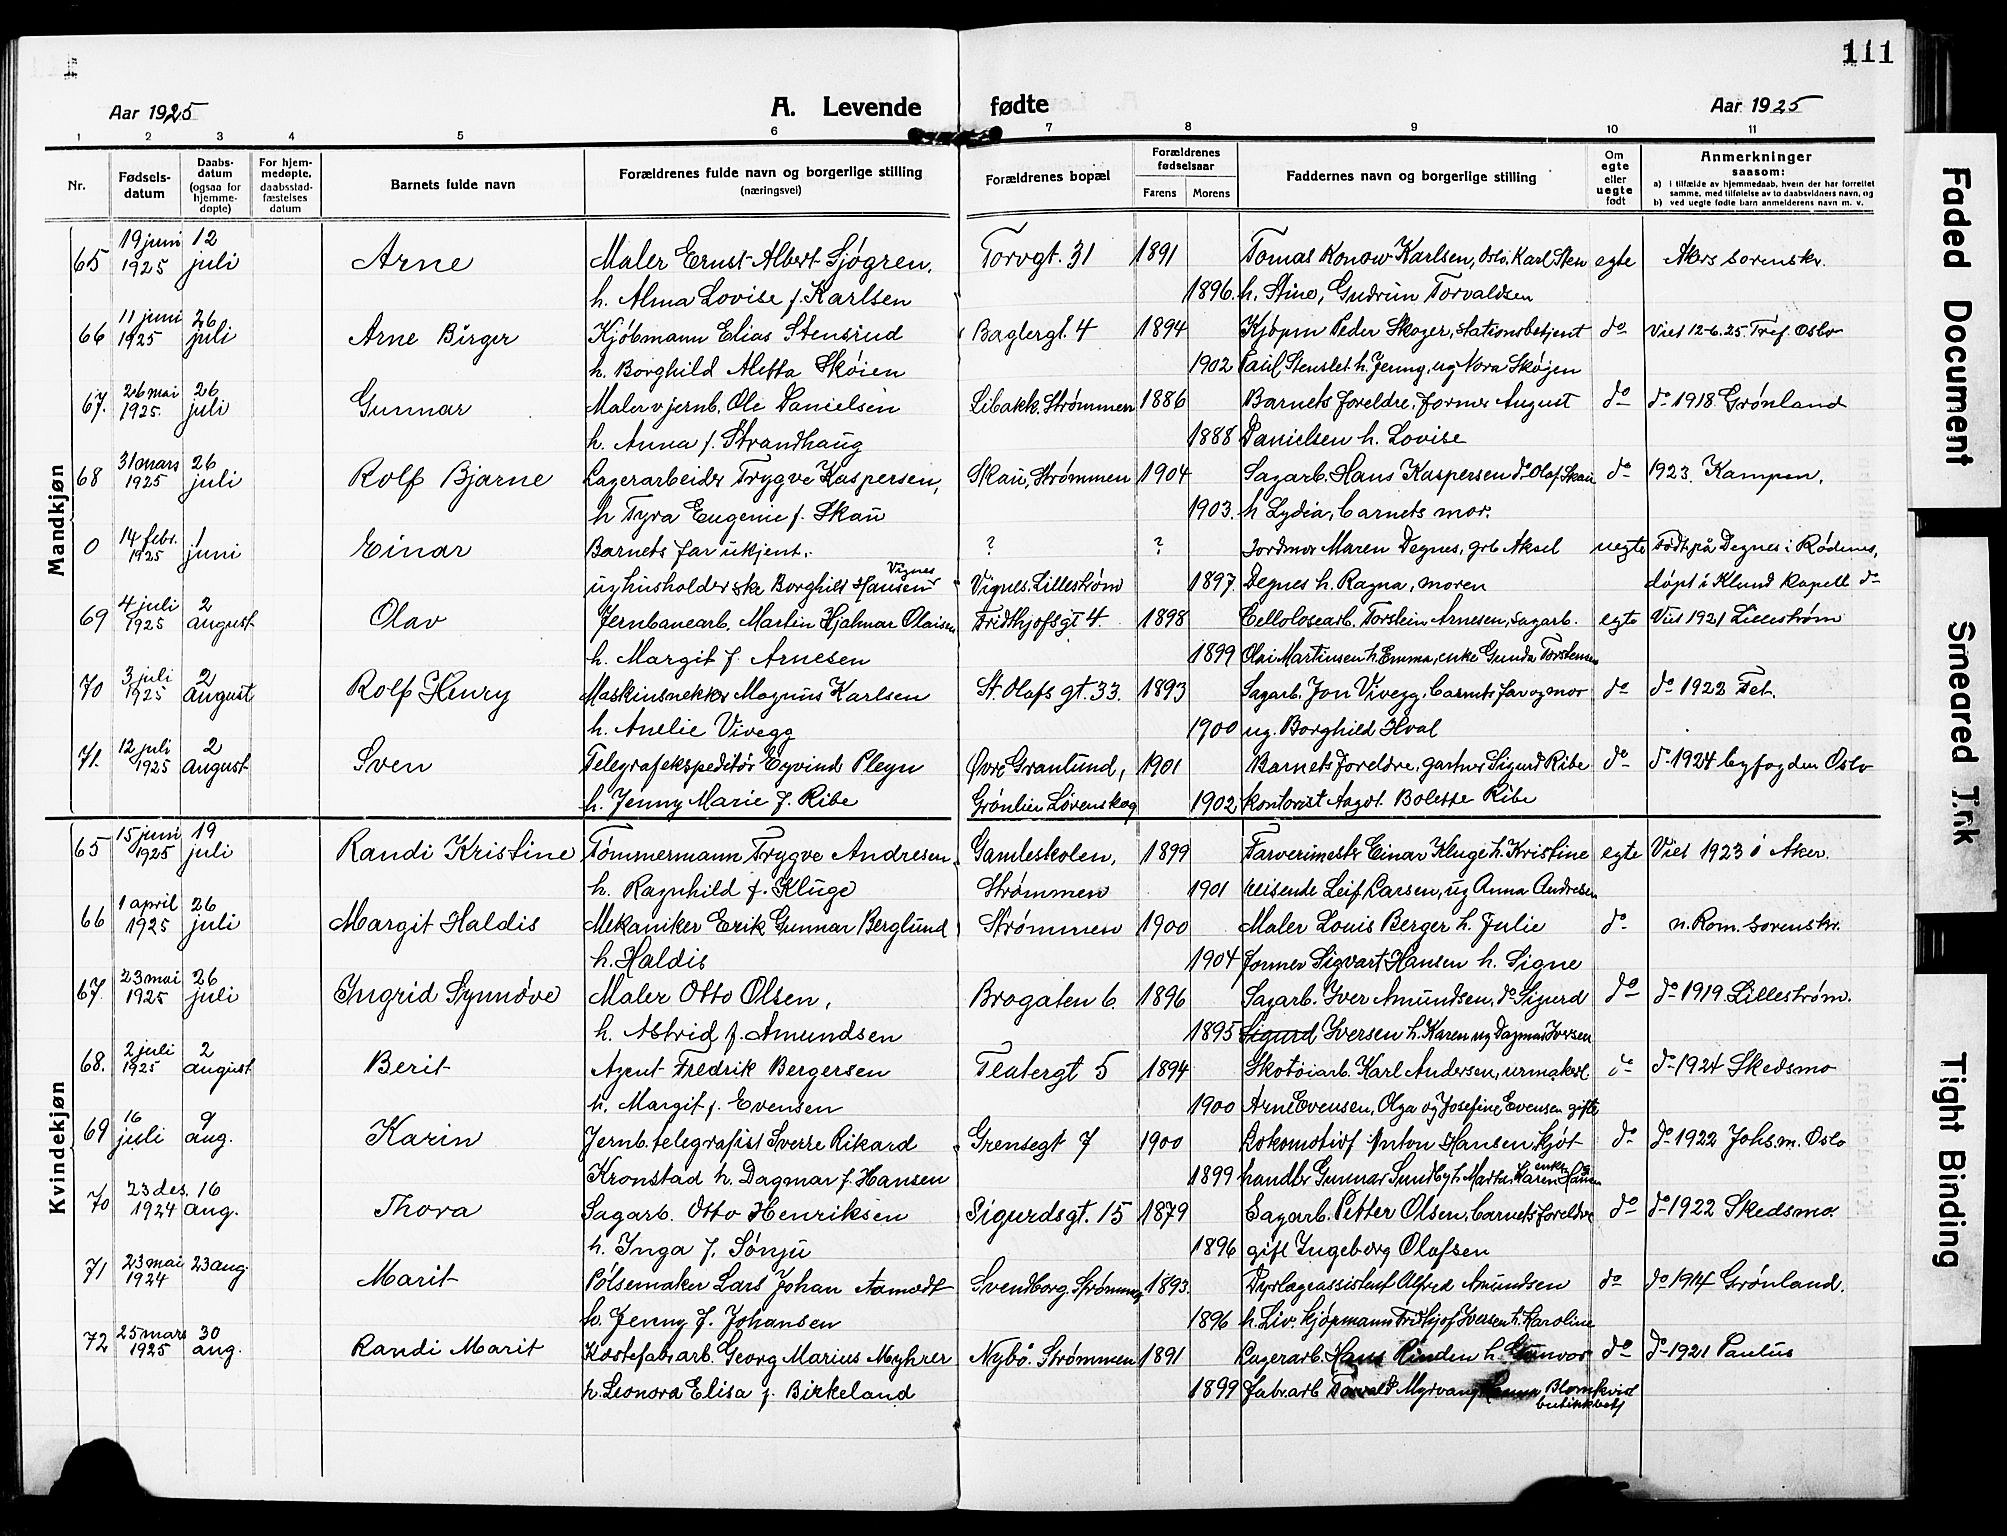 111
Aar 1925
A. Levende fødte
Aar 1925
1 2 3 4 5 6 7 8 9 10 11
Nr.
Fødsels-
datum
Daabs-
datum
(ogsaa for
hjemme-
døpte)
For hjem-
medøpte,
daabsstad-
fæstelses
datum
Barnets fulde navn
Forældrenes fulde navn og borgerlige stilling
(næringsvei)
Forældrenes bopæl
Forældrenes
fødselsaar
Farens Morens
Faddernes navn og borgerlige stilling
Om
egte
eller
uegte
født
Anmerkninger
saasom:
a) i tilfælde av hjemmedaab, hvem der har forrettet
samme, med tilføielse av to daabsvidners navn, og
b) ved uegte fødte barn anmelderens navn m. v.
Mandkjøn
65 19 juni 1925 12 juli Arne Maler Ernst Albert Sjøgren, Torvgt. 31 1891 Tomas Konow Karlsen, Oslo, Karl Sten egte Akers sorenskr.
h. Alma Lovise f. Karlsen 1896. h. Stine, Gudrun Torvaldsen
66 11 juni 1925 26 juli Arne Birger Kjøbmann Elias Stensrud Baglergt. 4 1894 Kjøpm Peder Skoger, stationsbetjent do Viet 12-6.25 Tref. Oslo
h. Borghild Aletta Skøien 1902 Paul Stenslet h. Jenny, ug Nora Skøjen
67. 26 mai 1925. 26 juli Gunnar Maler v jernb. Ole Danielsen Libakk. Strømmen 1886 Barnets foreldre, former August do do 1918 Grønland
h. Anna f. Strandhaug 1888 Danielsen h. Lovise
68 31 mars 1925 26 juli Rolf Bjarne Lagerarbeider Trygve Kaspersen, Skau, Strømmen 1904 Sagarb. Hans Kaspersen do Olaf Skau do 1923 Kampen,
h Tyra Eugenie f. Skau 1903. h Lydia, barnets mor.
0 14 febr. 1925 1 juni Einar Barnets far ukjent. ? ? Jordmor Maren Degnes, grb Aksel uegte Født på Degnes i Rødenes,
ug husholderske Borghild Hansen Vignes Vignes. Lillestrøm 1897. Degnes h. Ragna, moren døpt i Klund kapell do
69 4 juli 1925 2 august Olav Jernbanearb. Martin Hjalmar Olaisen Fridthjofsgt 4 1898 Cellolosearb. Torstein Arnesen, sagarb. egte Viet 1921 Lillestrøm
h. Margit f. Arnesen 1899 Olai Martinsen h. Emma, enke Gunda Torstensen
70 3 juli 1925 2 august Rolf Henry Maskinsnekker Magnus Karlsen St. Olafs gt. 33. 1893 Sagarb. Jon Vivegg, barnets far og mor do do 1922 Fet.
h. Amelie Vivegg 1900 ug. Borghild Hval
71. 12 juli 1925 2 august Sven Telegrafekspeditør Eyvind Pleyn Øvre Granlund, 1901 Barnets foreldre, gartner Sigurd Ribe do do 1924 byfogden Oslo
h. Jenny Marie f. Ribe Grønlien Lørenskog 1902 kontorist Aagot Bolette Ribe
Kvindekjøn
65 15 juni 1925 19 juli Randi Kristine Tømmermann Trygve Andresen Gamleskolen, 1899 Farverimestr Einar Kluge h. Kristine egte Viet 1923 i Aker.
h. Ragnhild f. Kluge Strømmen 1901 reisende Leif Larsen, ug Anna Andresen
66 1 april 1925 26 juli Margit Haldis Mekaniker Erik Gunnar Berglund Strømmen 1900 Maler Louis Berger h. Julie do n. Rom. sorenskr.
h. Haldis 1904 former Sigvart Hansen h. Signe
67. 23 mai 1925 26 juli Ingrid Synnøve Maler Otto Olsen, Brogaten 6. 1896 Sagarb. Iver Amundsen, do Sigurd do do 1919. Lillestrøm.
h. Astrid f. Amundsen 1895 Sigurd Iversen h. Karen ug Dagmar Iversen
68. 2 juli 1925 2 august Berit Agent Fredrik Bergersen Teatergt 5 1894 Skotøiarb. Karl Andersen, urmaker do do 1924 Skedsmo
h. Margit f. Evensen 1900 Arne Evensen, Olga og Josefine Evensen gifte
69 16 juli 9 aug. Karin Jernb. telegrafist Sverre Rikard Grensegt 7 1900 Lokomotivf Anton Hansen, kjøt do do 1922 Johs. m. Oslo
Kronstad h. Dagmar f. Hansen 1899 handler Gunnar Sundby h. Marta, enke Karen Hansen
70 23 des. 1924 16 aug. Thora Sagarb. Otto Henriksen Sigurdsgt. 15 1879 Sagarb. Petter Olsen, barnets foreldre do do 1922 Skedsmo.
h. Inga f. Sønju 1896 gift Ingeborg Olafsen
71 23 mai 1924 23 aug Marit Pølsemaker Lars Johan Aamodt Svendborg, Strømmen 1893. Dyrlægeassistent Alfred Amundsen do do 1914 Grønland.
h. Jenny f. Johansen 1896 h. Liv. kjøpmann Fridthjof Iversen h. Karoline
72 25 mars 1925 30 aug. Randi Marit Kostefabrarb. Georg Marius Myhrer Nybø. Strømmen 1891 Lagerarb. Hans Rinden h. Gunvor do do 1921 Paulus
h. Leonora Elisa f. Birkeland 1899 fabr.arb Torvald Myrvang Blomkvist
butikkbetj
Faded Document
Smeared Ink
Tight Binding